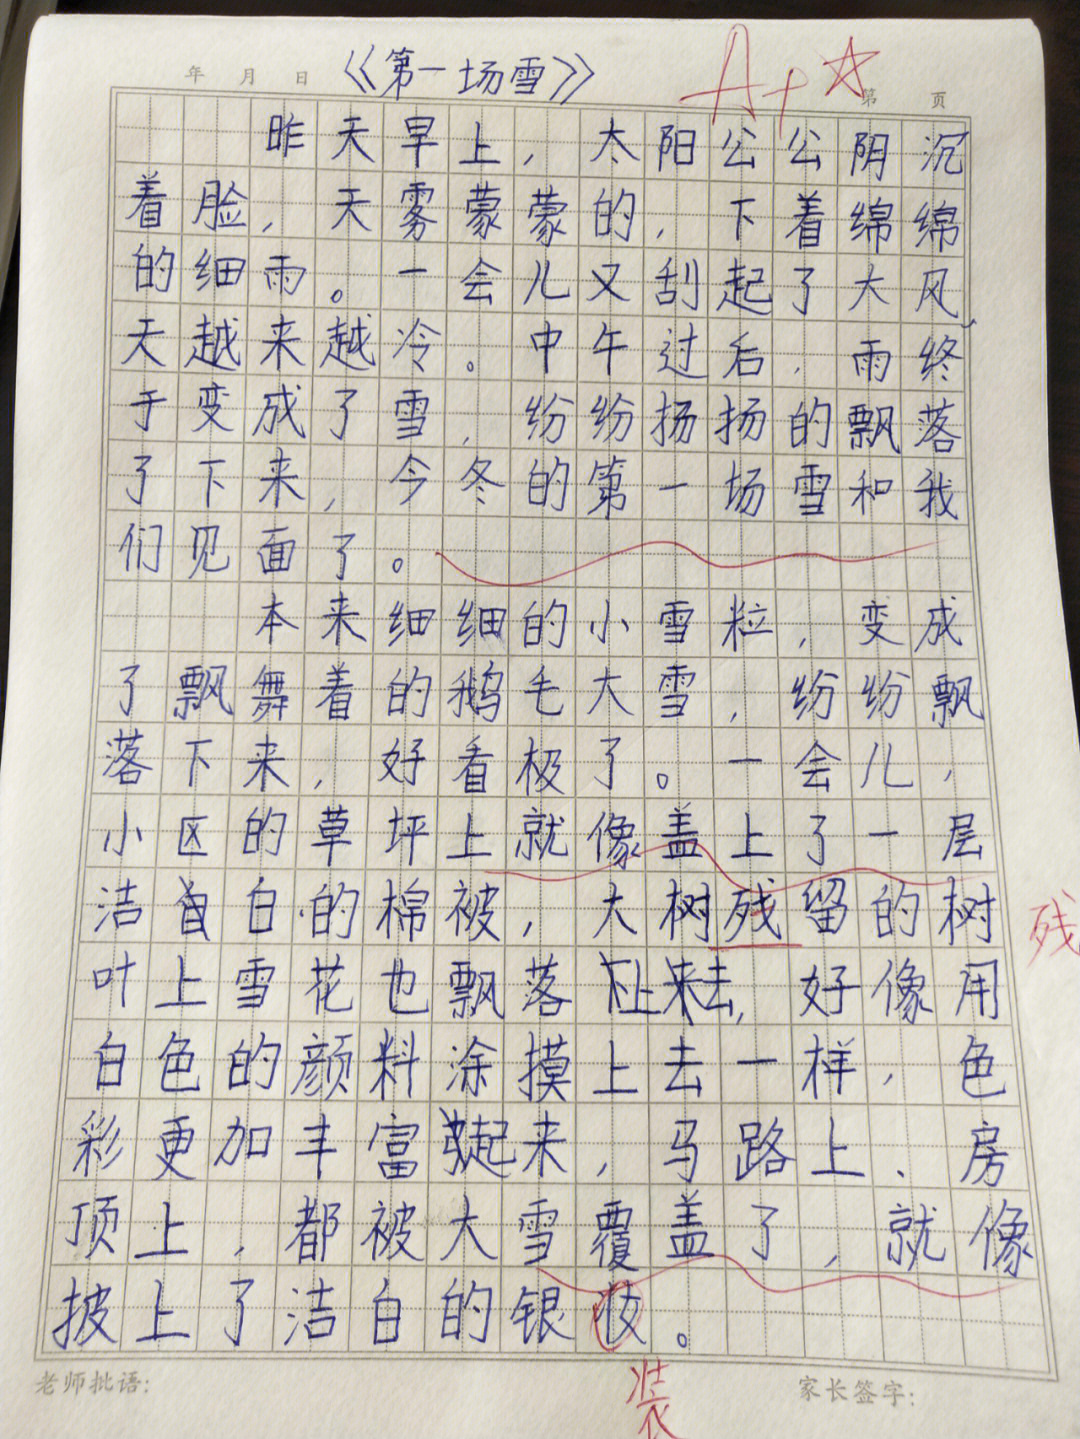 年 月 日 《第一场雪》 A+ ☆ 第 页
昨天早上，太阳公公阴沉
着脸，天雾蒙蒙的，下着绵绵
的细雨。一会儿又刮起了大风，
天越来越冷。中午过后，雨终
于变成了雪，纷纷扬扬的飘落
了下来，今冬的第一场雪和我
们见面了。
本来细细的小雪粒，变成
了飘舞着的鹅毛大雪，纷纷飘
落下来，好看极了。一会儿，
小区的草坪上就像盖上了一层
洁白的棉被，大树残留的树 残
叶上雪花也飘落上去，好像用
白色的颜料涂摸上去一样，色
彩更加丰富起来，马路上、房
顶上，都被大雪覆盖了，就像
披上了洁白的银妆。
老师批语: 装 家长签字: